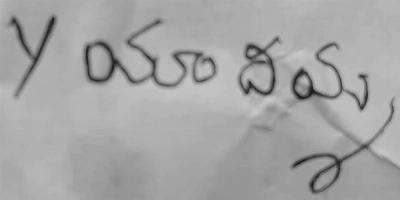 Y యాం దియ్య